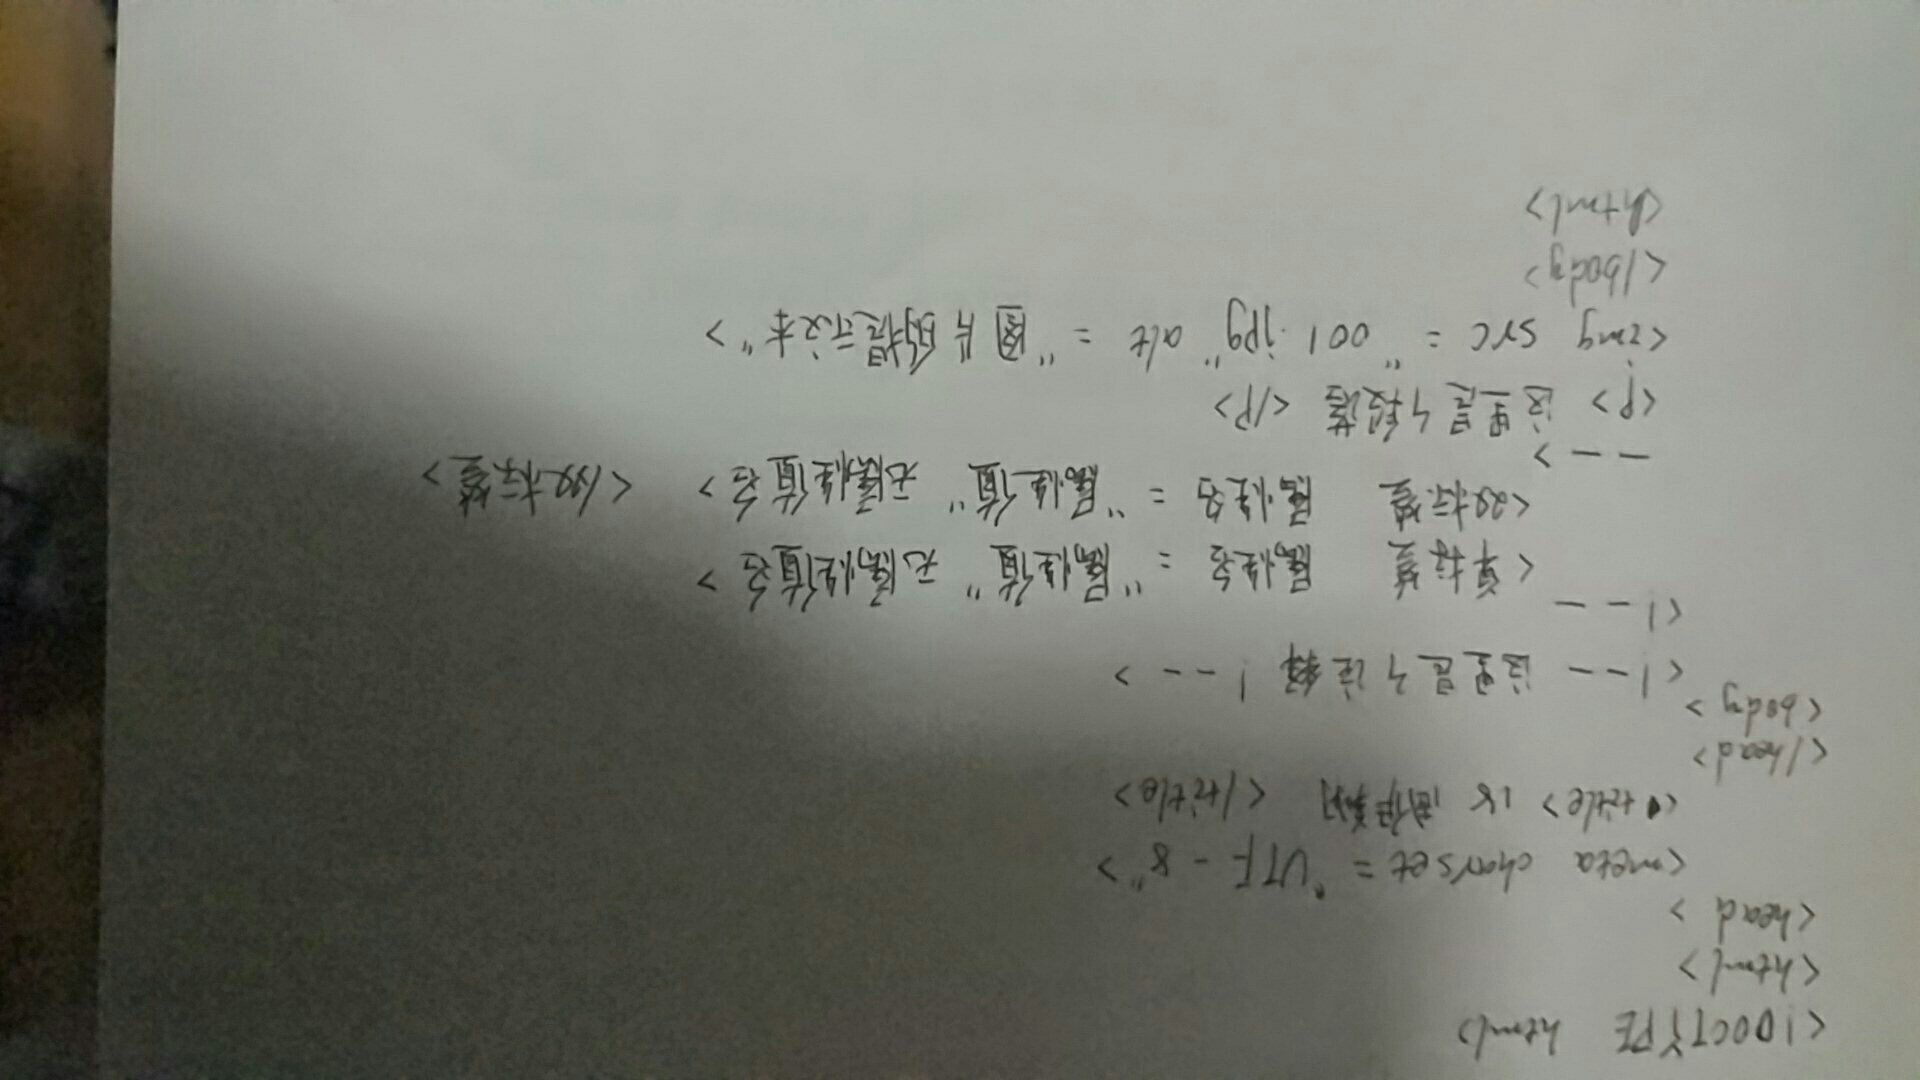 <!DOCTYPE html>
<html>
<head>
<meta charset="UTF-8">
<title> 18 周伊翔 </title>
</head>
<body>
<!-- 这里是个注释 !-->
<!--
<单标签 属性名="属性值" 无属性值名>
<双标签 属性名="属性值" 无属性值名> </双标签>
-->
<p> 这里是个段落 </p>
<img src="001.jpg" alt="图片的提示文本">
</body>
<html>